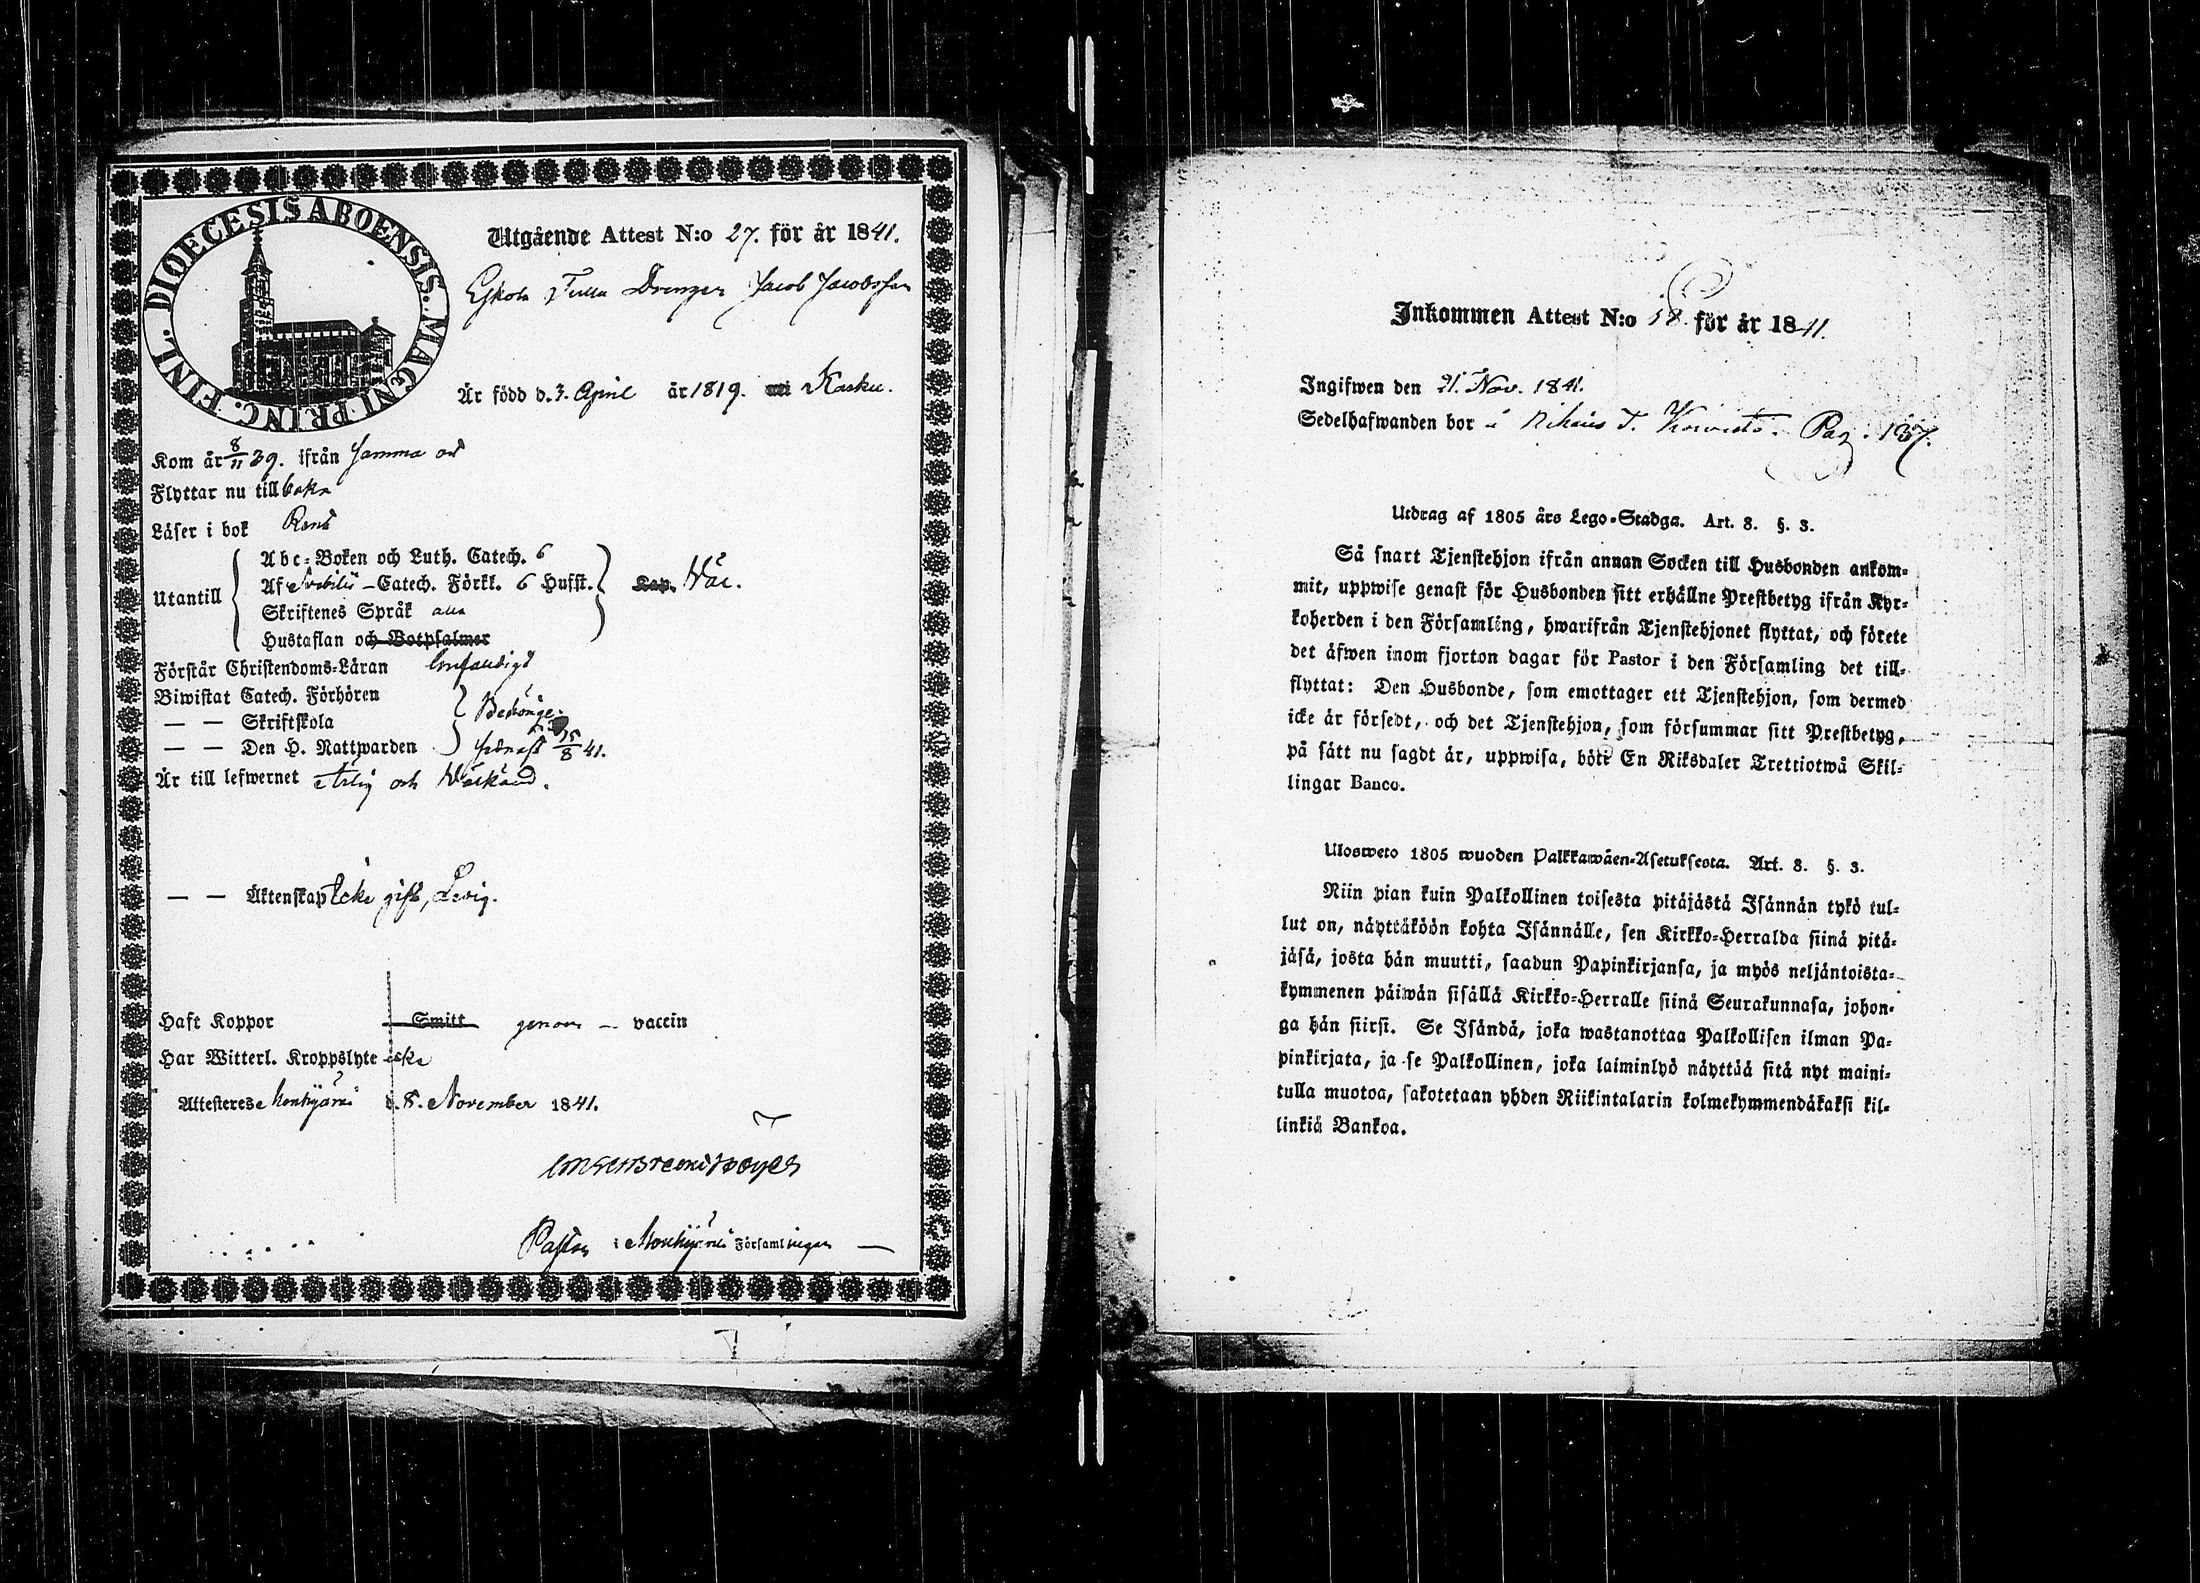 DIOECESIS ABOENSIS. MAGNI PRINC. FINL.
Utgående Attest N:o 27. för år 1841.
Drengen Jacob Jacobsson
Är född d. 3. April år 1819. Karku.
Kom år 8/11 39. ifrån samma ort
Flyttar nu tillbaka
Läser i bok Rent
Utantill
Abc-Boken och Luth. Catech. 6
Af Svebilii-Catech. Förkl. 6 Husst.
Skriftenes Språk alla
Hustaflan och Botpsalmer
Kap. Wäl.
Förstår Christendoms-Läran
Biwistat Catech. Förhören
— — Skriftskola
— — Den H. Nattwarden 15/8 41.
Är till lefwernet Ärlig och
— — Äktenskap Icke gift, Ledig.
Haft Koppor Smitt genom — vaccin
Har Witterl. Kroppslyte icke
Attesteres Mouhijärvi d. 8. November 1841.
Pastor i Mouhijärvi Församlingen —
Inkommen Attest N:o 58. för år 1841.
Ingifwen den 21. Nov. 1841.
Sedelhafwanden bor i Pag. 137.
Utdrag af 1805 års Lego-Stadga. Art. 8. §. 3.
Så snart Tjenstehjon ifrån annan Socken till Husbonden ankom-
mit, uppwise genast för Husbonden sitt erhållne Prestbetyg ifrån Kyr-
koherden i den Församling, hwarifrån Tjenstehjonet flyttat, och förete
det äfwen inom fjorton dagar för Pastor i den Församling det till-
flyttat: Den Husbonde, som emottager ett Tjenstehjon, som dermed
icke är försedt, och det Tjenstehjon, som försummar sitt Prestbetyg,
på sätt nu sagdt är, uppwisa, böte En Riksdaler Trettiotwå Skil-
lingar Banco.
Ulosweto 1805 wuoden Palkkawäen-Asetuksesta. Art. 8. §. 3.
Niin pian kuin Palkollinen toisesta pitäjästä Isännän tykö tul-
lut on, näyttäköön kohta Isännälle, sen Kirkko-Herralda siinä pitä-
jäsä, josta hän muutti, saadun Papinkirjansa, ja myös neljäntoista-
kymmenen päiwän sisällä Kirkko-Herralle siinä Seurakunnasa, johon-
ga hän siirsi. Se Isändä, joka wastanottaa Palkollisen ilman Pa-
pinkirjata, ja se Palkollinen, joka laiminlyö näyttää sitä nyt maini-
tulla muotoa, sakotetaan yhden Riikintalarin kolmekymmendäkaksi kil-
linkiä Bankoa.